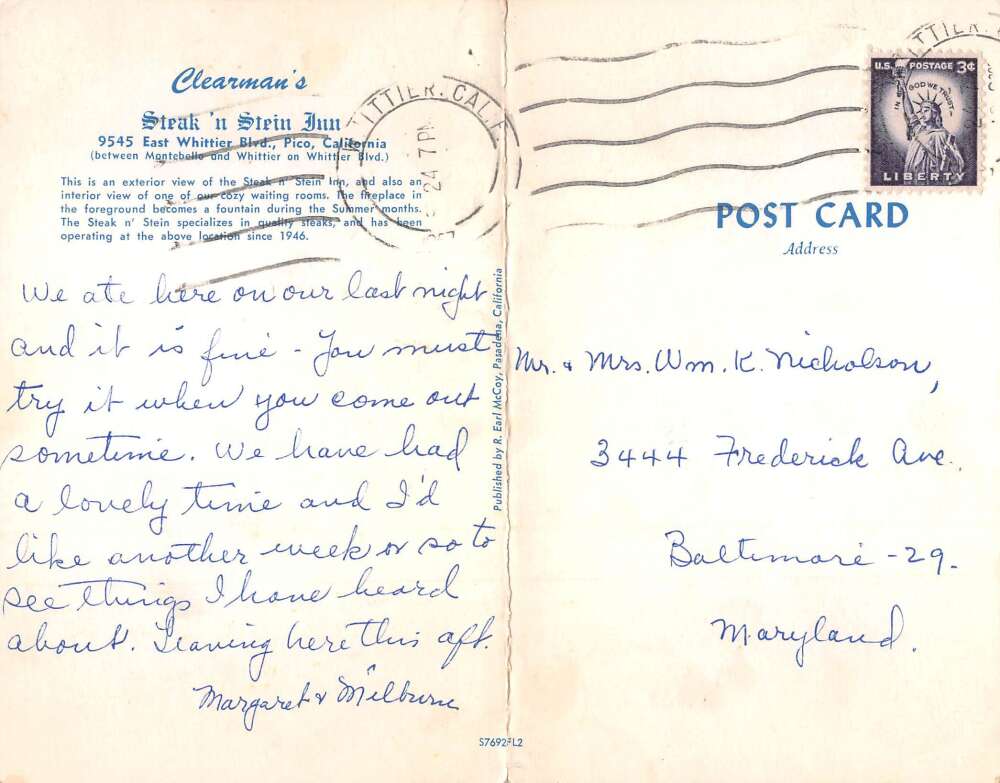 Clearman's
Steak 'n Stein Inn
9545 East Whittier Blvd., Pico, California
(between Montebello and Whittier on Whittier Blvd.)
This is an exterior view of the Steak n' Stein Inn, and also an
interior view of one of our cozy waiting rooms. The fireplace in
the foreground becomes a fountain during the Summer months.
The Steak n' Stein specializes in quality steaks, and has been
operating at the above location since 1946.
We ate here on our last night
and it is fine - You must
try it when you come out
sometime. We have had
a lovely time and I'd
like another week or so to
see things I have heard
about. Leaving here this aft.
Margaret & Milburn
Published by R. Earl McCoy, Pasadena, California
S7692-L2
WHITTIER. CALIF
24 7 PM
U.S. POSTAGE 3¢
IN GOD WE TRUST
LIBERTY
POST CARD
Address
Mr. & Mrs. Wm. K. Nicholson,
3444 Frederick Ave.
Baltimore - 29.
Maryland.